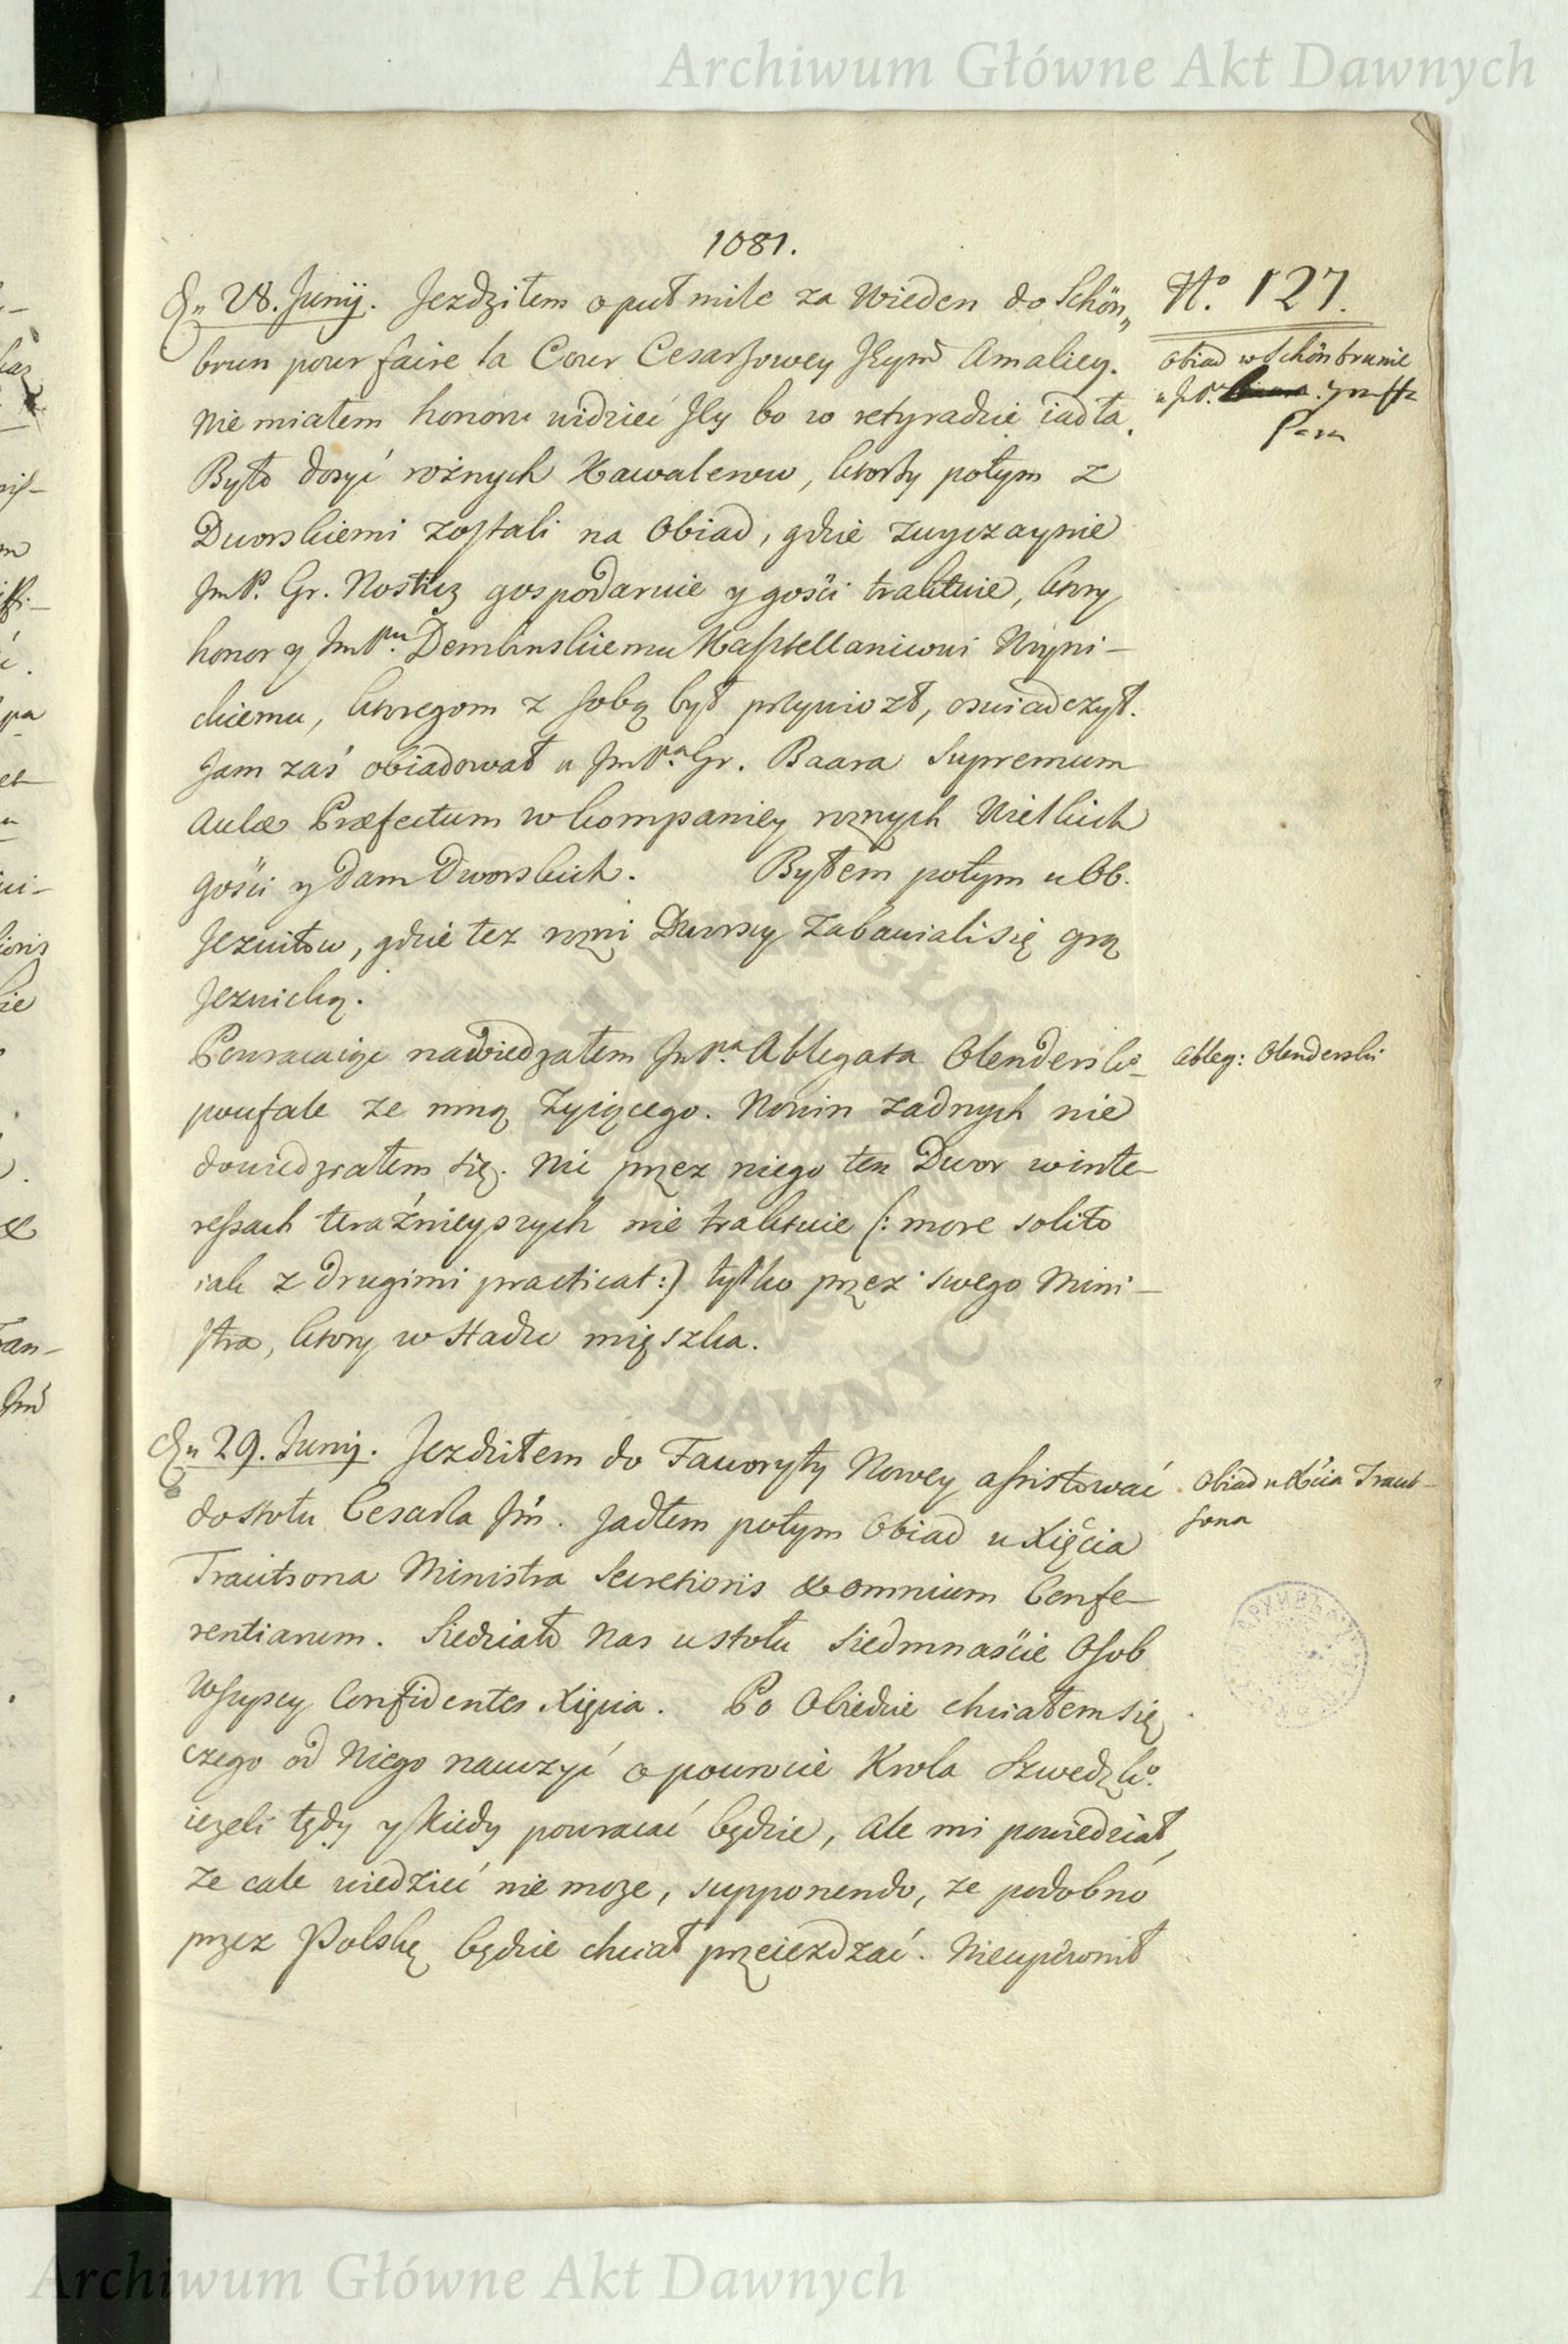 Archiwum Główne Akt Dawnych
1081.
Dn 28. Junij. Jezdziłem o puł mile za Wieden do Schön„
brun pour faire la Cour Cesarzowey Jeymć Amaliey.
Nie miałem honoru widzieć Jey bo w retyradzie iadła.
Było dosyć rożnych Kawalerow, ktorzy potym z
Dworskiemi zostali na Obiad, gdzie zwyczaynie
JmP. Gr. Nostiz gospodaruie y gości traktuie, ktory
honor y JmPnu Dembinskiemu Kasztellanicowi Woyni-
ckiemu, ktoregom z sobą był przywiozł, oswiadczył.
Jam zaś obiadował u JmPa Gr. Baara Supremum
Aulæ Præfectum w kompaniey roznych Wielkich
gości y Dam Dworskich. Byłem potym u Ob.
Jezuitow, gdzie tez rozni Dworscy zabawiali się grą
Jezuicką.
Powracaiąc nawiedzałem JmPa Ablegata Olendersko
poufale ze mną zyiącego. Nowin zadnych nie
dowiedziałem się. Nic przez niego ten Dwor w inte-
ressach teraźnieyszych nie traktuie (: more solito
iak z drugimi practicat :) tylko przez swego Mini-
stra, ktory w Hadze mięszka.
Dn 29. Junij. Jezdziłem do Faworyty Nowey assistować
do stołu Cesarza Jm. Jadłem potym Obiad u Xięcia
Trautsona Ministra Secretioris & omnium Confe-
rentiarum. Siedziało nas u stołu siedmnaście Osob
wszyscy Confidentes Xięcia. Po Obiedzie chciałem się
czego od Niego nauczyć o powrocie Krola Szwedzko.
iezeli tędy y kiedy powracać będzie, ale mi powiedział,
ze cale wiedzieć nie moze, supponendo, ze podobno
przez Polskę będzie chciał przeiezdzać. Nieupewnił
No. 127.
Obiad w Schönbrunie
Ableg: Olenderski
Obiad u Xcia Traut-
sona
Archiwum Główne Akt Dawnych